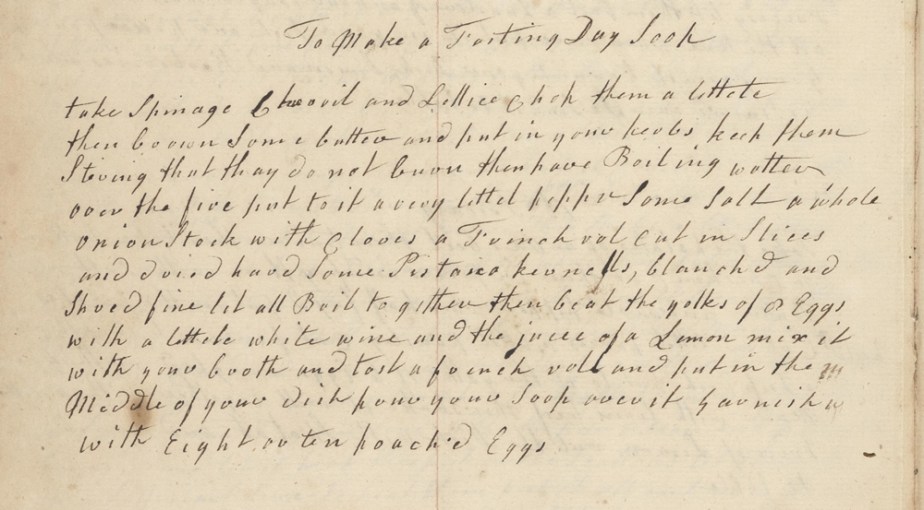 To Make a Fasting Day Soop
take Spinage Chervil and Lettice Chop them a littele
then brown Some butter and put in your herbs keep them
Stiring that thay do not burn then have Boiling watter
over the fire put to it a very littel pepper Some Salt a whole
onion Stock with Cloves a Frinch rol Cut in Slices
and dried hard Some Pistaico kernells, blanch'd and
Shred fine let all Boil to gether then beat the yolks of 8 Eggs
with a littele white wine and the juice of a Lemon mix it
with your broth and tost a french roll and put in the
Middle of your dish pour your Soop over it Garnish
with Eight or ten poach'd Eggs